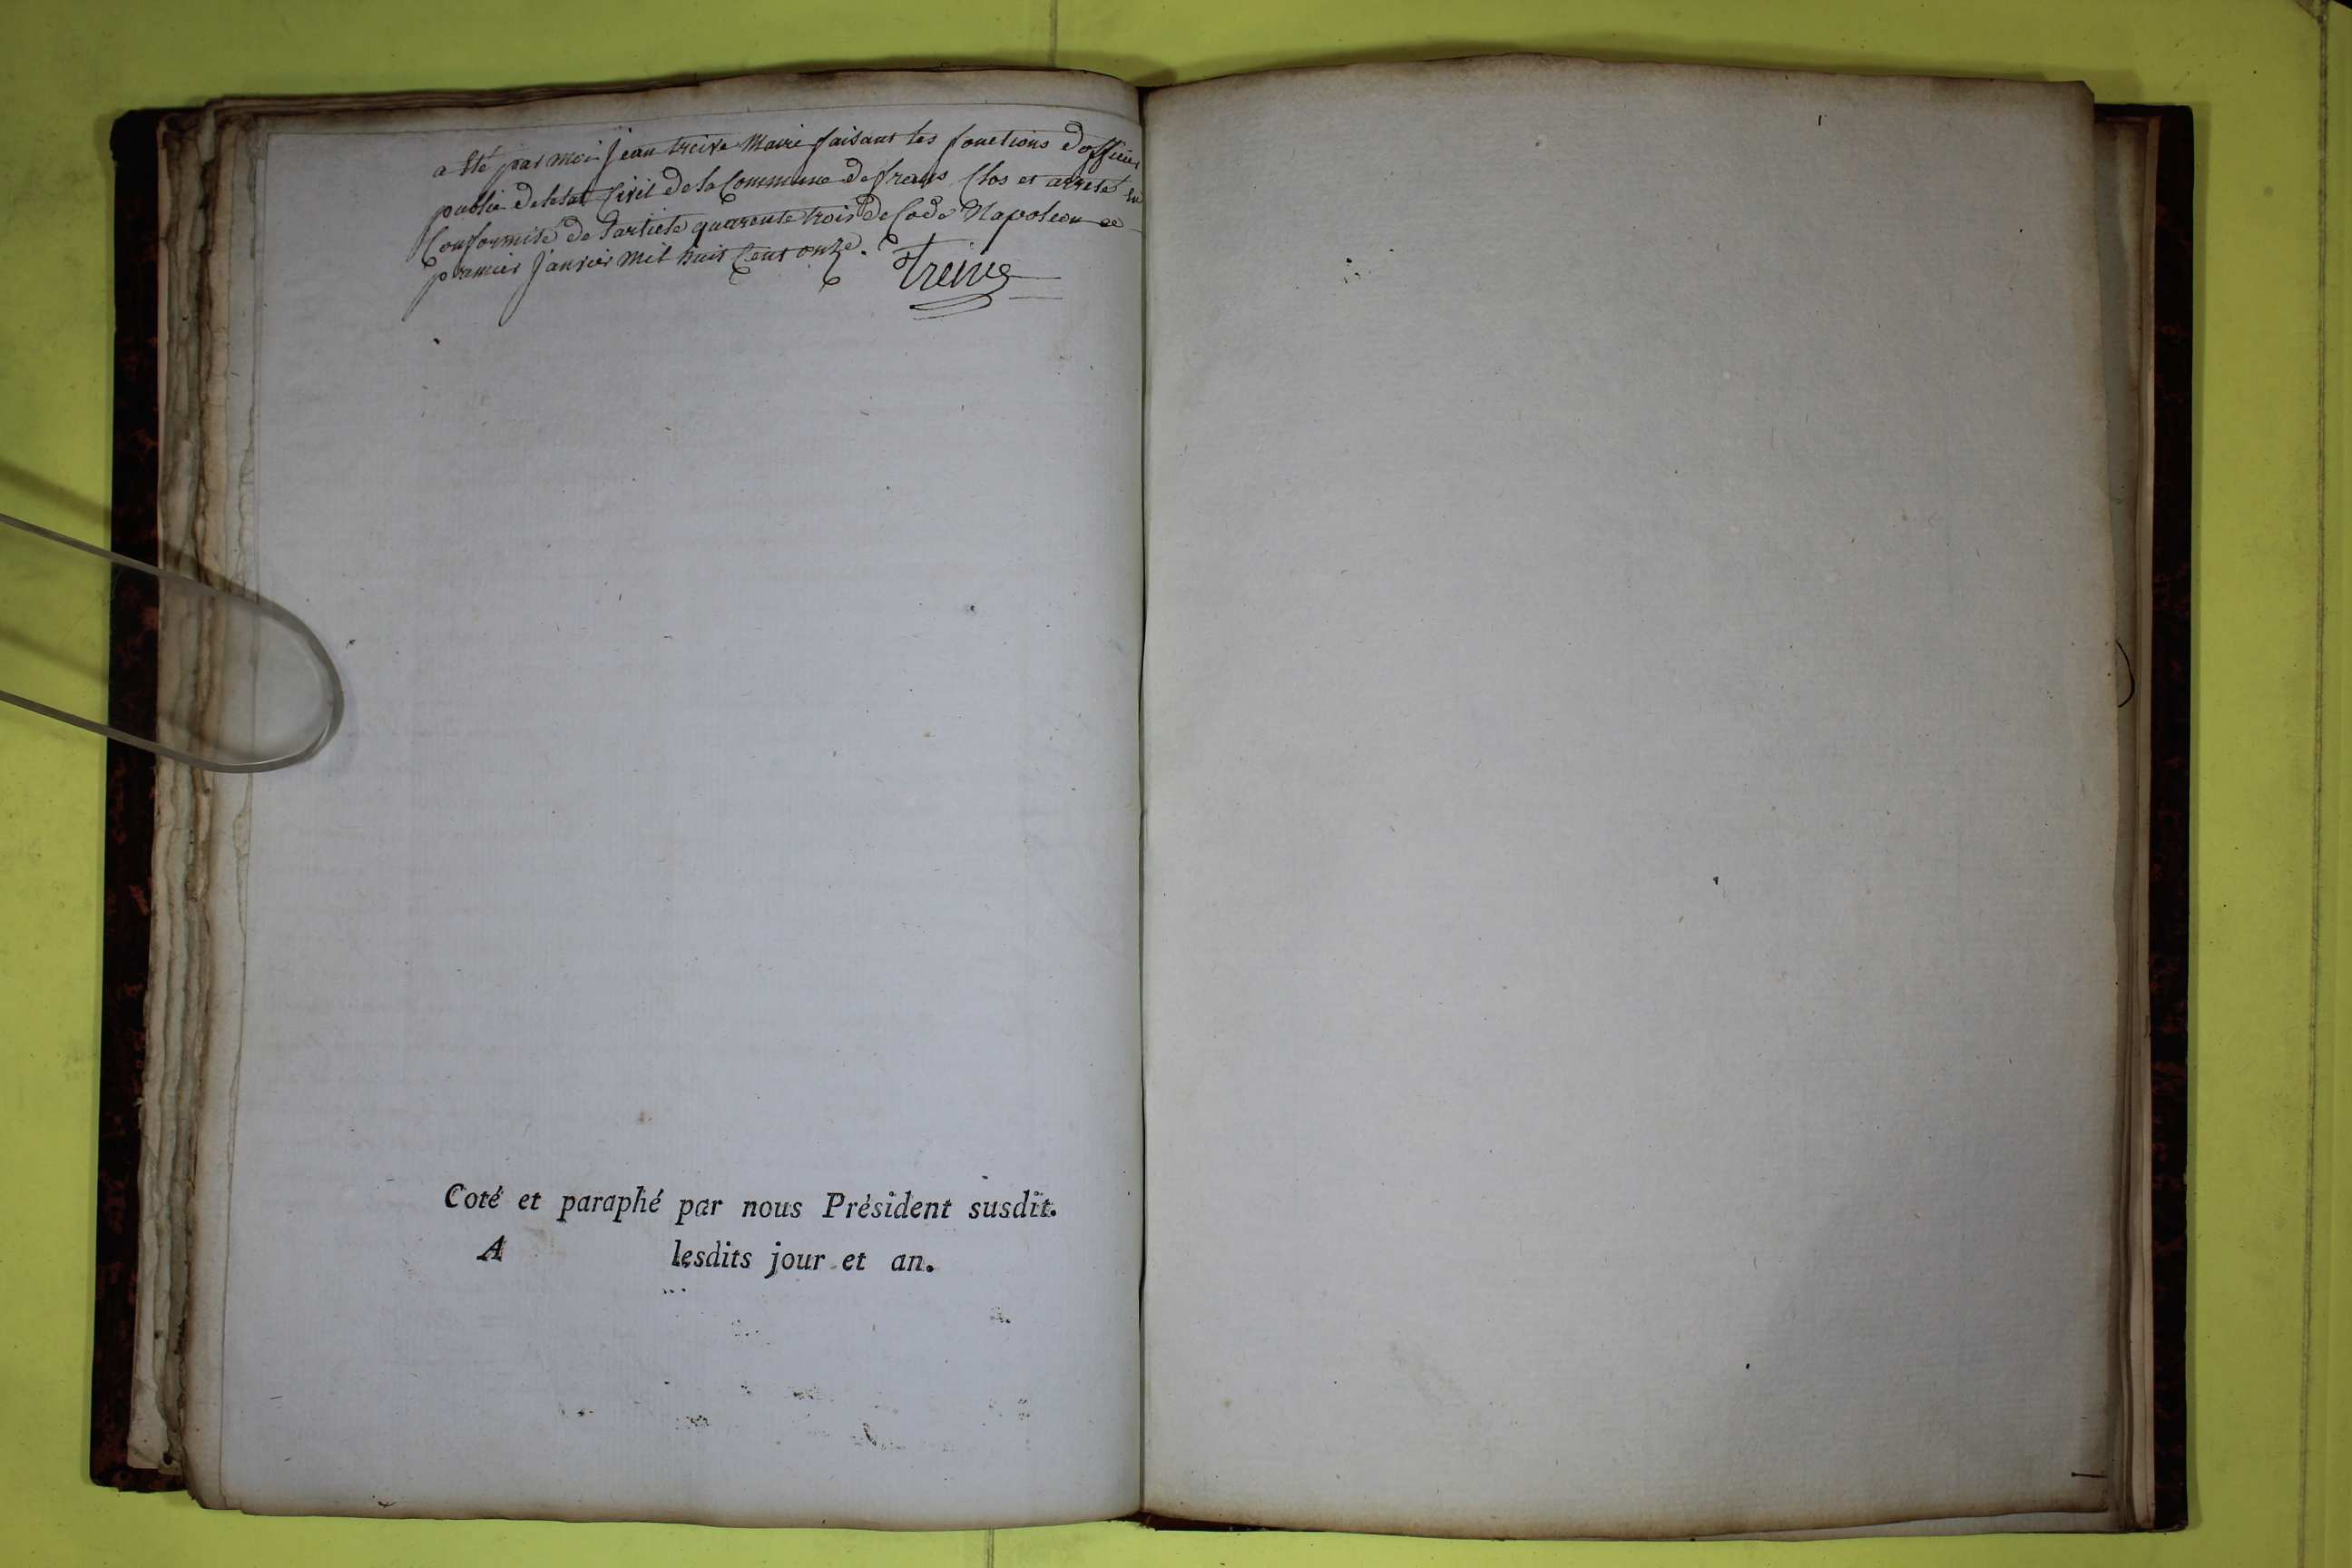 a Eté par moi Jean treive Maire faisant les fonctions d'officier
public de letat Civil de la Commune de frans Clos et arreté en
Conformité de l'article quarente trois de Code Napoleon ce
premier Janvier mil huit Cent onze. Treive
Coté et paraphé par nous Président susdit.
A lesdits jour et an.